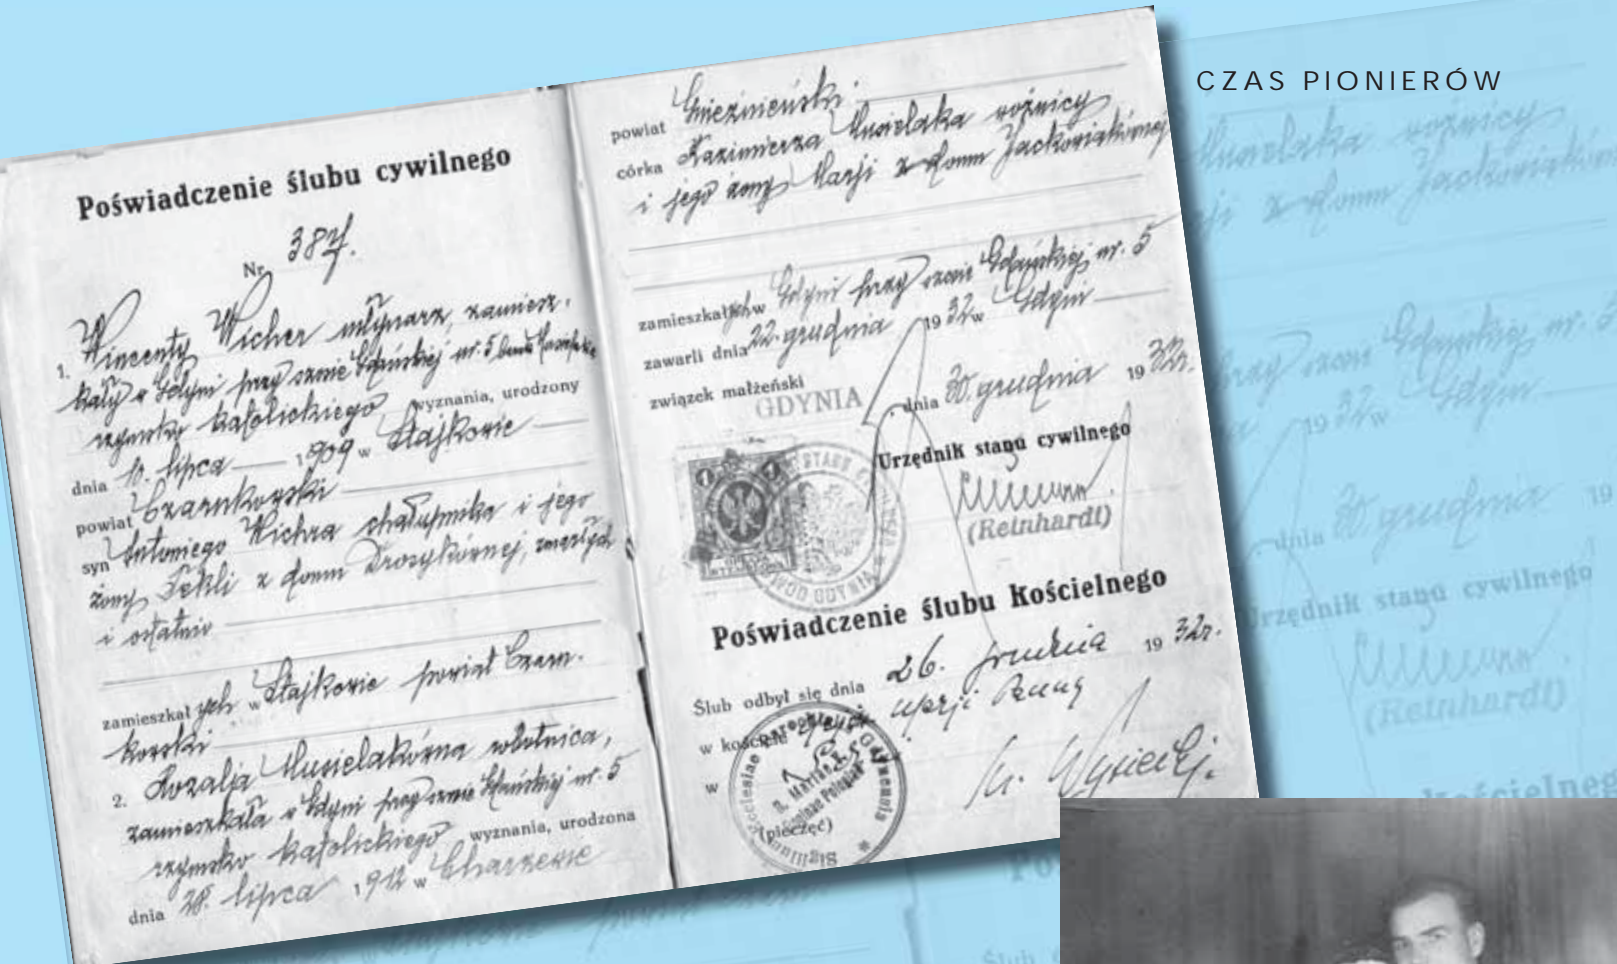 CZAS PIONIERÓW
Poświadczenie ślubu cywilnego
Nr. 387.
1. Wincenty Wicher młynarz, zamiesz-
kały w Gdyni przy szosie Gdańskiej nr. 5
rzymsko katolickiego wyznania, urodzony
dnia lipca 1909 w Stajkowie
powiat Czarnkowski
syn Antoniego Wichra chałupnika i jego
żony Tekli z domu zmarłych
i ostatnio
zamieszkałych w Stajkowie powiat Czarn-
kowski
2. Rozalja Musielakówna robotnica,
zamieszkała w Gdyni przy szosie Gdańskiej nr. 5
rzymsko katolickiego wyznania, urodzona
dnia 28. lipca 1912 w
powiat Gnieźnieński.
córka Kazimierza Musielaka rożnicy
i jego żony Marji z domu Jackowiakównej
zamieszkałych w Gdyni przy szosie Gdańskiej nr. 5
zawarli dnia 22. grudnia 1932 w Gdyni
związek małżeński
GDYNIA, dnia 30 grudnia 1932r.
Urzędnik stanu cywilnego
(Reinhardt)
Poświadczenie ślubu Kościelnego
Ślub odbył się dnia 26. grudnia 1932r.
w kościele
w
(pieczęć)